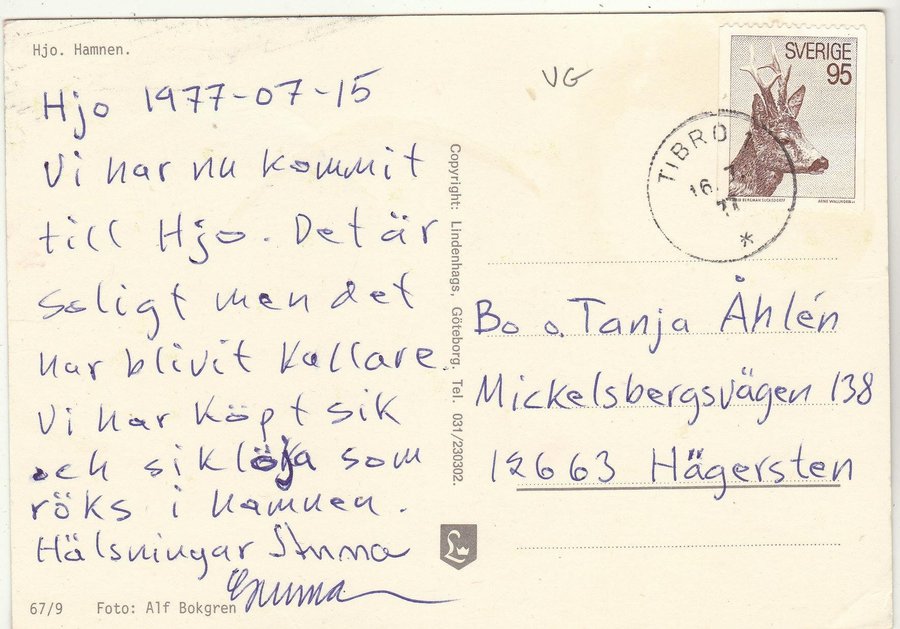 Hjo. Hamnen.
Hjo 1977-07-15
Vi har nu kommit
till Hjo. Det är
soligt men det
har blivit kallare.
Vi har köpt sik
och siklöja som
röks i hamnen.
Hälsningar Anna
Emma
67/9 Foto: Alf Bokgren
Copyright: Lindenhags, Göteborg. Tel. 031/230302.
L
VG
SVERIGE
95
ARNE WALLHORN
TIBRO
16. 7.
77
*
Bo o. Tanja Åhlén
Mickelsbergsvägen 138
12663 Hägersten